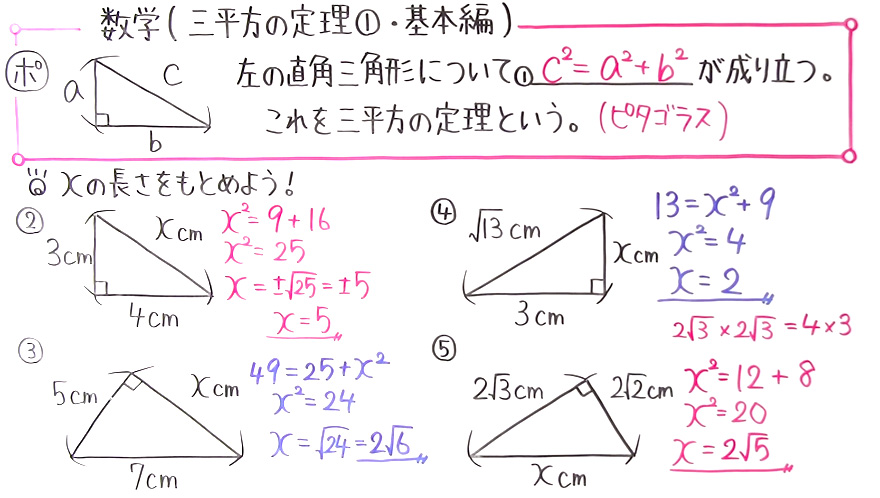 数学(三平方の定理①・基本編)
ポ
a
c
b
左の直角三角形について① c²=a²+b² が成り立つ。
これを三平方の定理という。(ピタゴラス)
xの長さをもとめよう!
②
3cm
xcm
4cm
x²=9+16
x²=25
x=±√25=±5
x=5
④
√13cm
xcm
3cm
13=x²+9
x²=4
x=2
③
5cm
xcm
7cm
49=25+x²
x²=24
x=√24=2√6
⑤
2√3cm
2√2cm
xcm
2√3×2√3=4×3
x²=12+8
x²=20
x=2√5